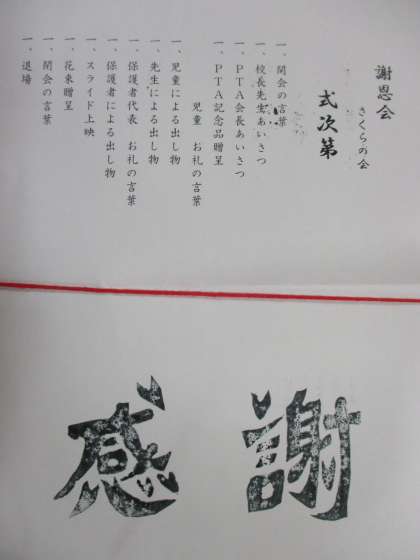 謝恩会
さくらの会
式次第
一、開会の言葉
一、校長先生あいさつ
一、PTA会長あいさつ
一、PTA記念品贈呈
児童 お礼の言葉
一、児童による出し物
一、先生による出し物
一、保護者代表 お礼の言葉
一、保護者による出し物
一、スライド上映
一、花束贈呈
一、閉会の言葉
一、退場
感謝